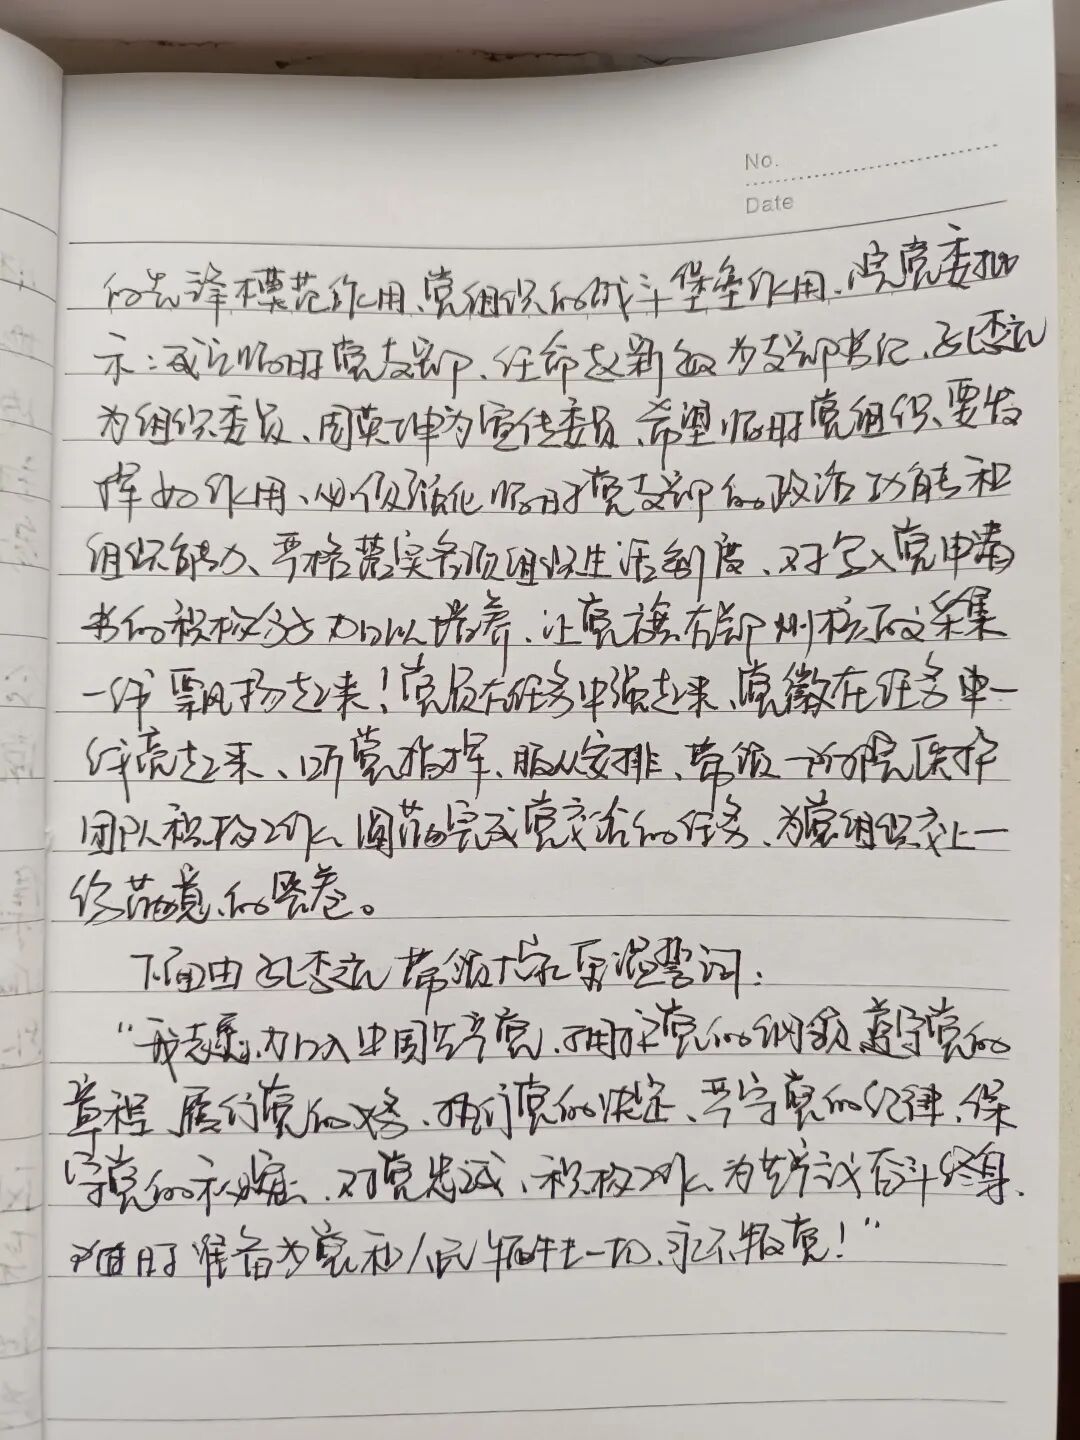 No.
Date
的先锋模范作用、党组织的战斗堡垒作用、院党委批
示：成立临时党支部、任命赵新敏为支部书记、孔志远
为组织委员、周英坤为宣传委员、希望临时党组织要发
挥好作用、必须强化临时党支部的政治功能和
组织能力、严格落实各项组织生活制度、对写入党申请
书的积极分子加以培养、让党旗在郑州核酸采集
一线飘扬起来！党员在任务中强起来、党徽在任务中一
线亮起来、听党指挥、服从安排、带领一附院医护
团队积极工作、圆满完成党交给的任务、为党组织交上一
份满意的答卷。
下面由孔志远带领大家重温誓词：
“我志愿加入中国共产党、拥护党的纲领、遵守党的
章程、履行党员义务、执行党的决定、严守党的纪律、保
守党的秘密、对党忠诚、积极工作、为共产主义奋斗终身、
随时准备为党和人民牺牲一切、永不叛党！”